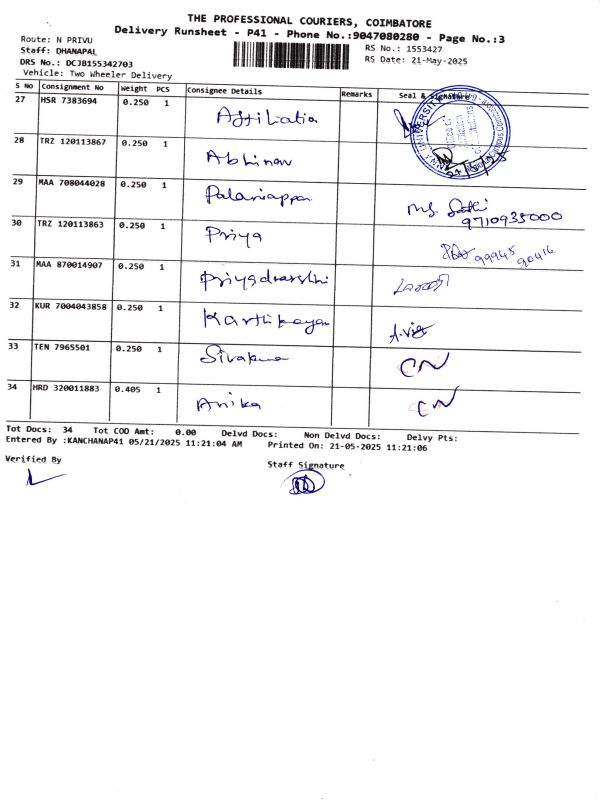 THE PROFESSIONAL COURIERS, COIMBATORE
Delivery Runsheet - P41 - Phone No.:9047080280 - Page No.:3
Route: N PRIVU
RS No.: 1553427
Staff: DHANAPAL
RS Date: 21-May-2025
DRS No.: DCJB155342703
Vehicle: Two Wheeler Delivery
S No Consignment No Weight PCS Consignee Details Remarks Seal & Signature
27 HSR 7383694 0.250 1 Affiliatia
28 TRZ 120113867 0.250 1 Abhinav
29 MAA 708044028 0.250 1 Palaniappan
9710935000
30 TRZ 120113863 0.250 1 Priya 99945 90416
31 MAA 870014907 0.250 1 Priyadharshni
32 KUR 7004043858 0.250 1 Karthikeyan
33 TEN 7965501 0.250 1 Sivakuma CN
34 HRD 320011883 0.405 1 Anika CN
Tot Docs: 34 Tot COD Amt: 0.00 Delvd Docs: Non Delvd Docs: Delvy Pts:
Entered By :KANCHANAP41 05/21/2025 11:21:04 AM Printed On: 21-05-2025 11:21:06
Verified By
Staff Signature